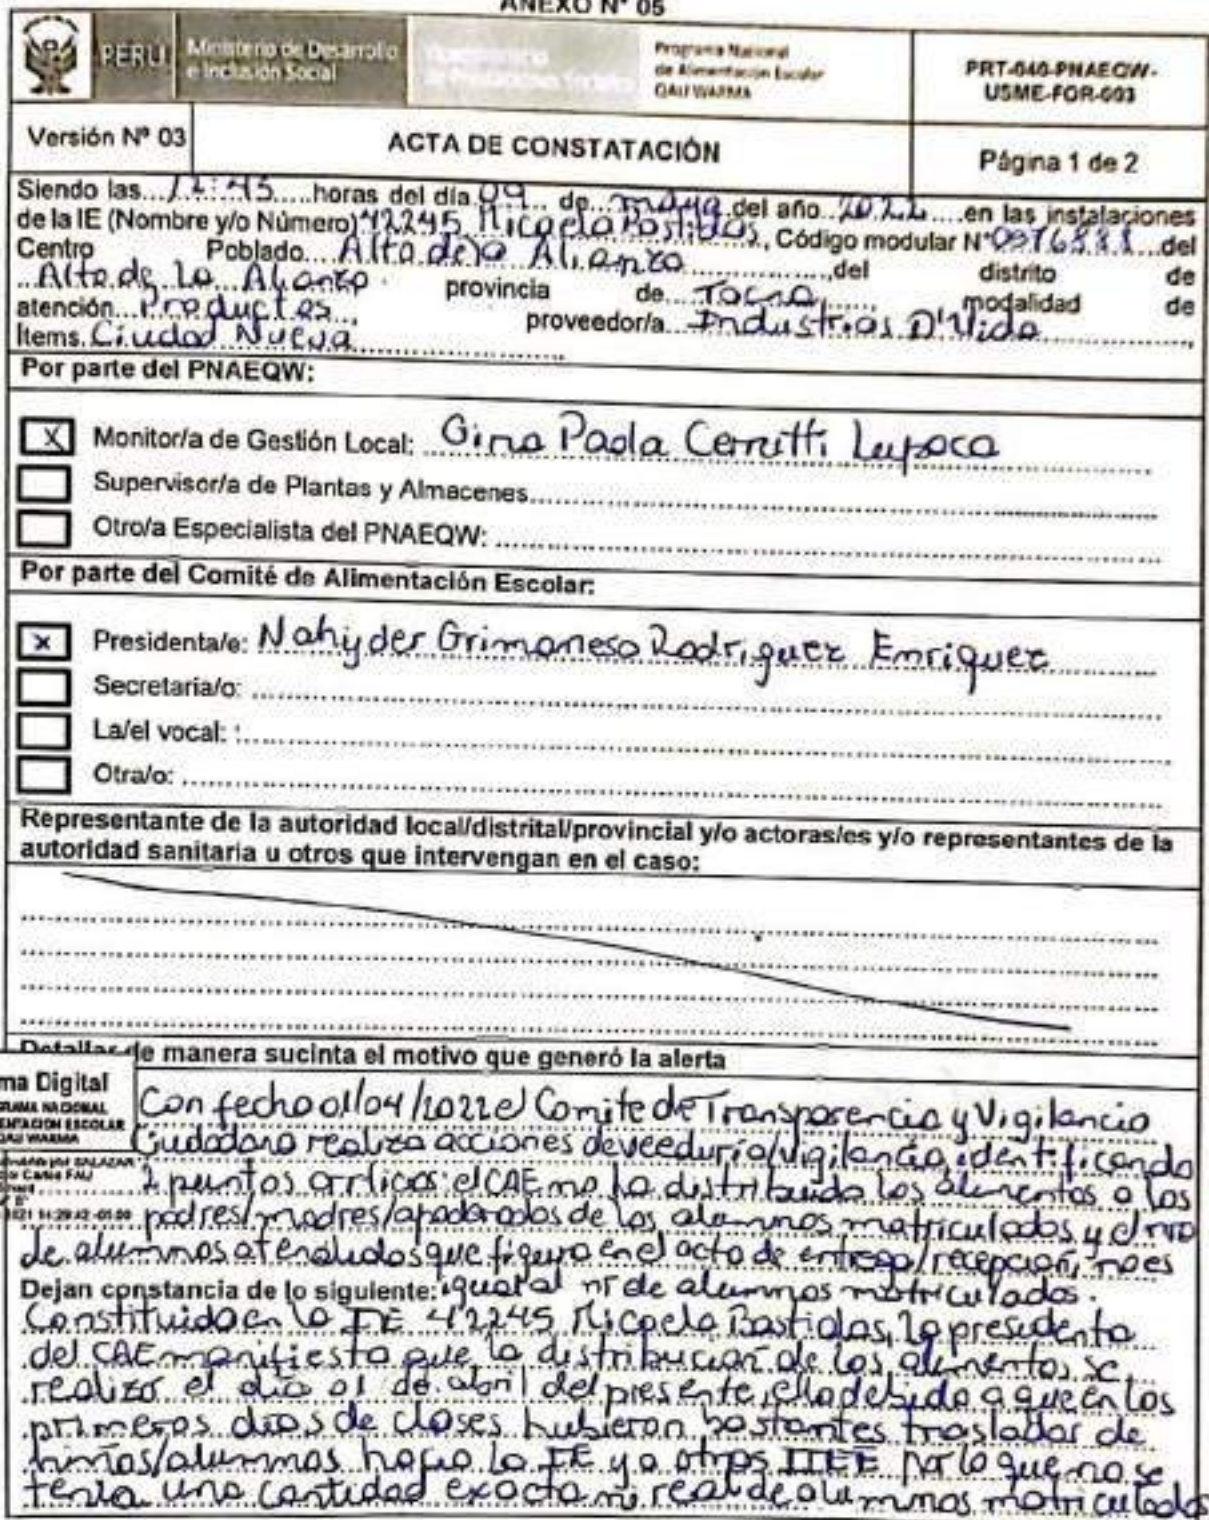 ANEXO N° 05
PERU Ministerio de Desarrollo e Inclusión Social
Programa Nacional de Alimentación Escolar QALI WARMA
PRT-040-PNAEQW-USME-FOR-003
Versión Nº 03
ACTA DE CONSTATACIÓN
Página 1 de 2
Siendo las...12:45.....horas del día 09... de...mayo del año..2022....en las instalaciones
de la IE (Nombre y/o Número) 42245 Micaela Bastidas, Código modular N° ...del
Centro Poblado....Alto de la Alianza..............,del distrito de
...Alto de la Alianza. provincia de....Tacna,..... modalidad de
atención...Productos..., proveedor/a...Industrias D'Vida
Items. Ciudad Nueva
Por parte del PNAEQW:
X Monitor/a de Gestión Local: Gina Paola Cerritti Lupaca
Supervisor/a de Plantas y Almacenes
Otro/a Especialista del PNAEQW:
Por parte del Comité de Alimentación Escolar:
x Presidenta/e: Nahyder Grimanesa Rodriguez Enriquez
Secretaria/o:
La/el vocal: :
Otra/o:
Representante de la autoridad local/distrital/provincial y/o actoras/es y/o representantes de la
autoridad sanitaria u otros que intervengan en el caso:
Detallar de manera sucinta el motivo que generó la alerta
ma Digital
QALI WARMA
SALAZAR
Con fecha 01/04/2022 el Comite de Transparencia y Vigilancia
Ciudadana realiza acciones de veeduria/vigilancia, identificando
2 puntos criticos: el CAE no ha distribuido los alimentos a los
padres/madres/apoderados de los alumnos matriculados y el nro
de alumnos atendidos que figura en el acta de entrega/recepcion, no es
Dejan constancia de lo siguiente: igual al nr de alumnos matriculados.
Constituida en la IE 42245 Micaela Bastidas, la presidenta
del CAE manifiesta que la distribucion de los alimentos se
realizo el dia 01 de abril del presente, ello debido a que en los
primeros dias de clases hubieron bastantes traslados de
niñas/alumnas hacia la IE y a otras IIEE por lo que no se
tenia una cantidad exacta ni real de alumnos matriculados